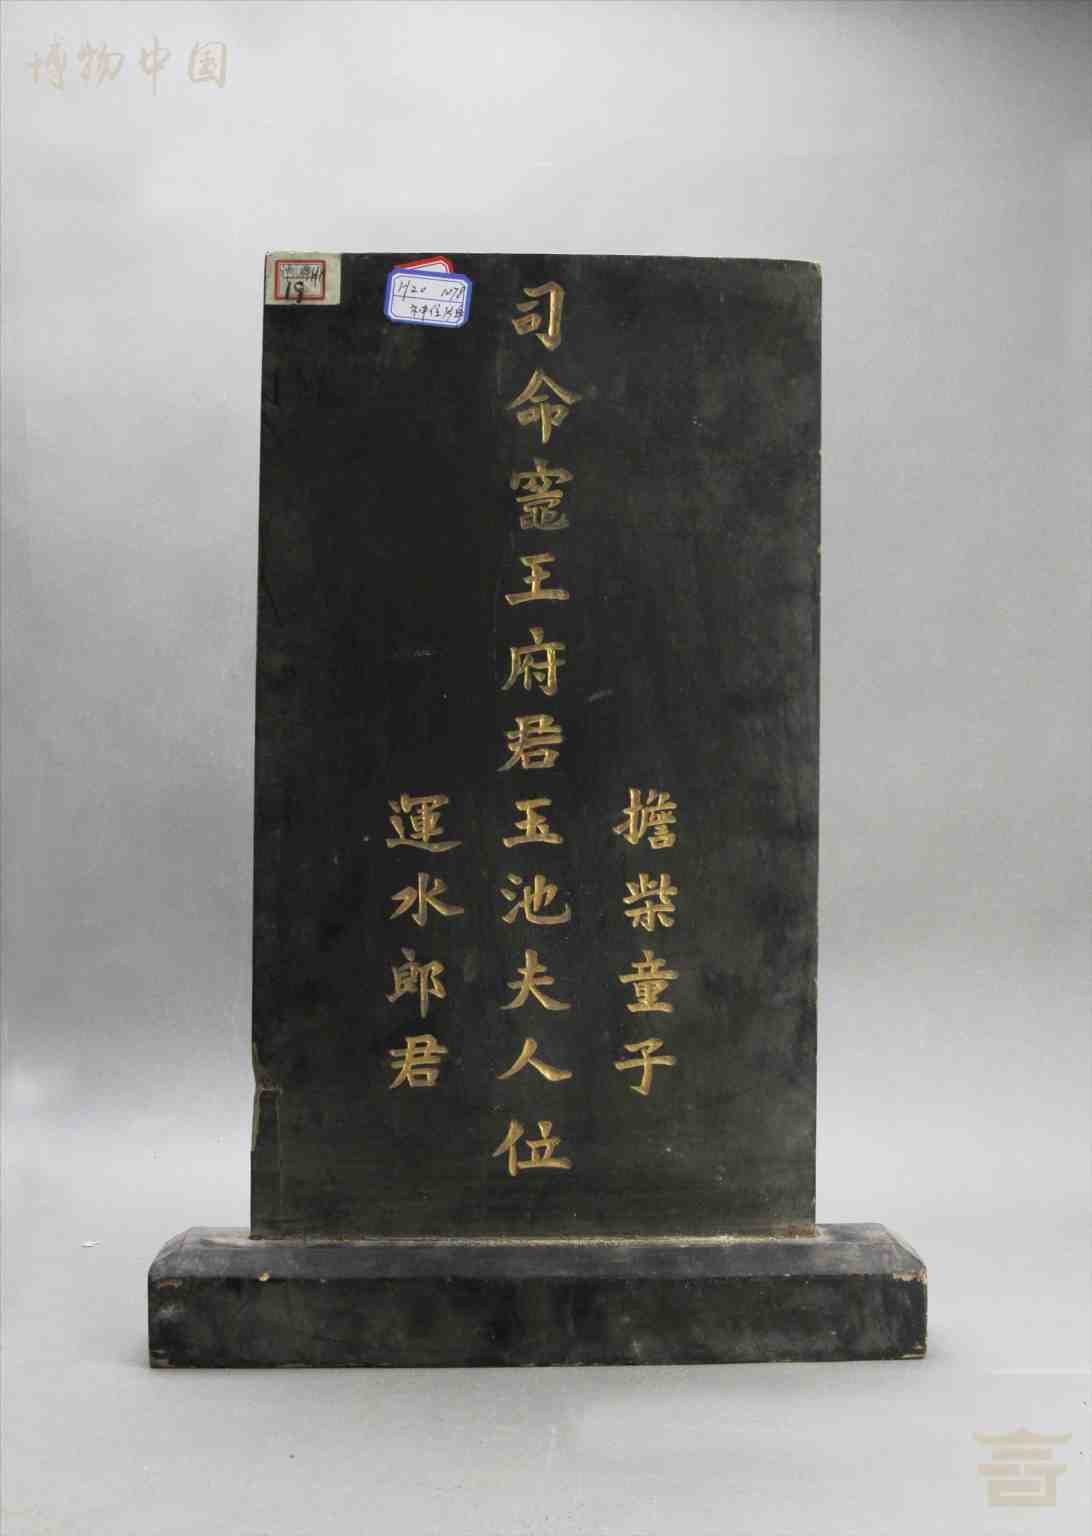 博物中国
擔柴童子
司命竈王府君玉池夫人位
運水郎君
19
H20 1078